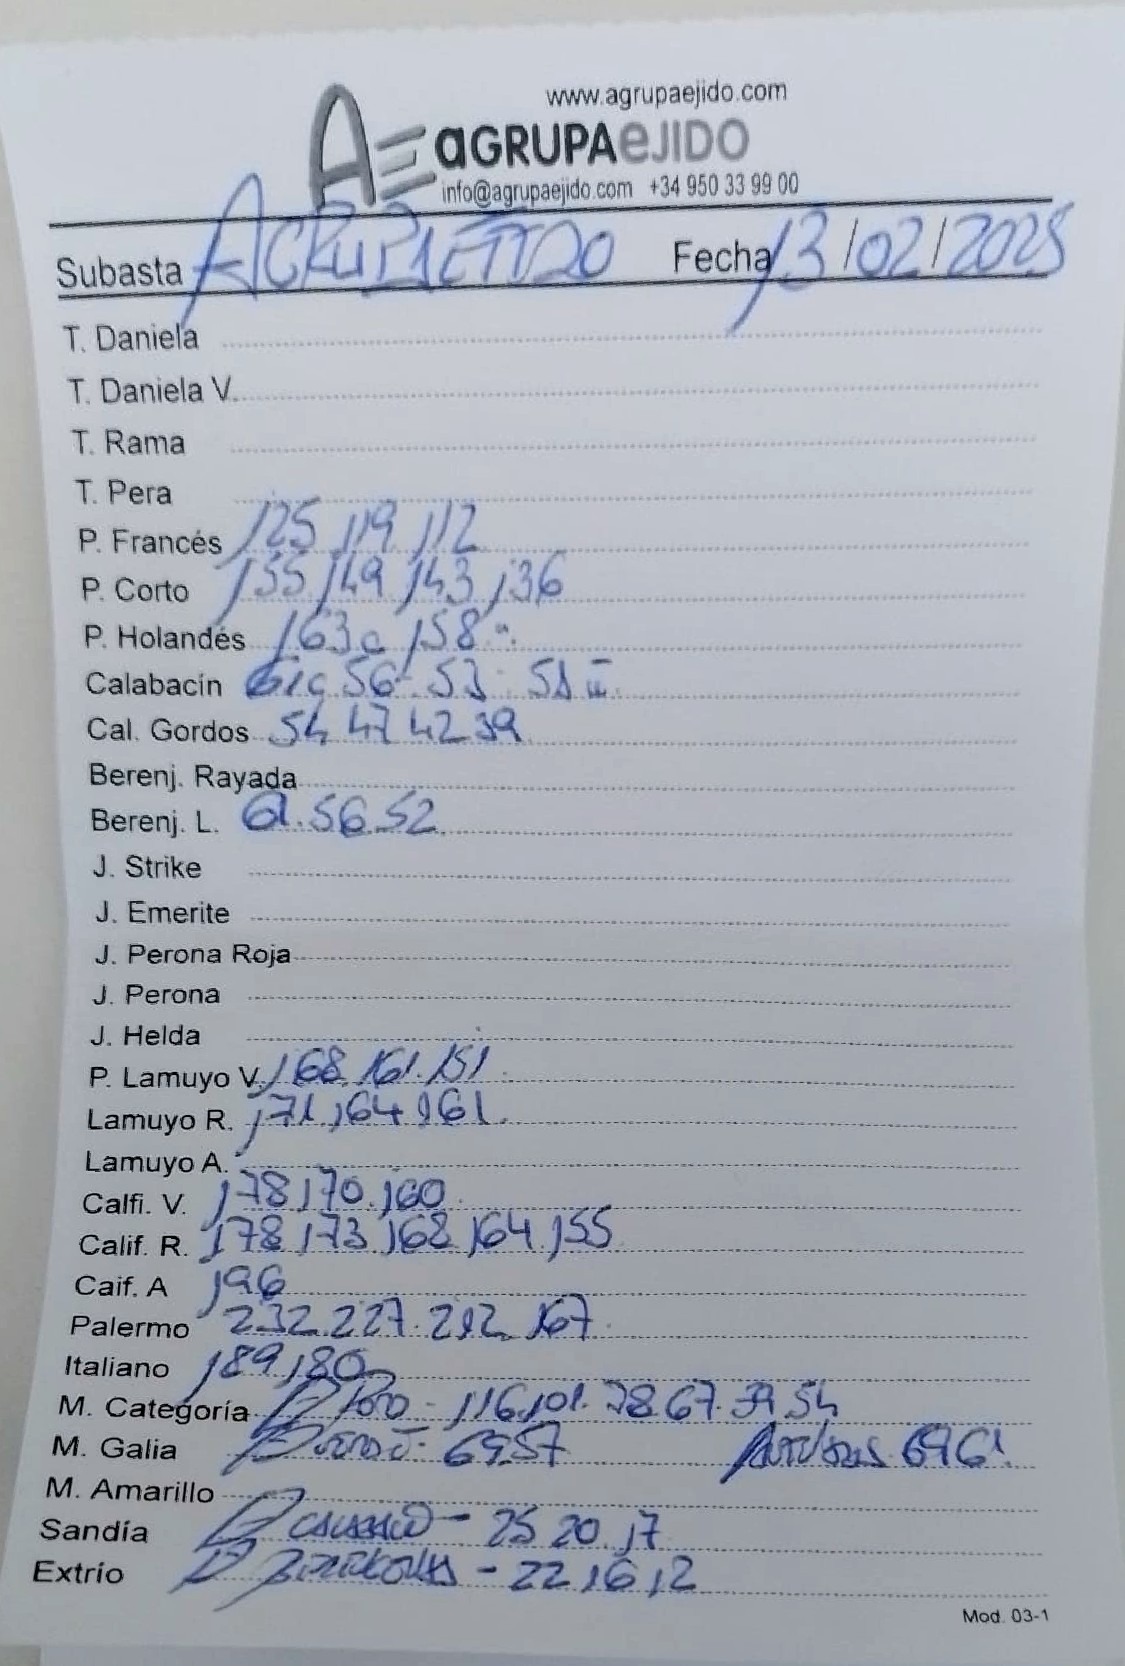 www.agrupaejido.com
AE aGRUPAeJIDO
info@agrupaejido.com +34 950 33 99 00
Subasta AGRUPAEJIDO Fecha 13/02/2025
T. Daniela
T. Daniela V.
T. Rama
T. Pera
P. Francés 125 119 112
P. Corto 155 149 143 136
P. Holandés 163 158
Calabacín 56 53 51 II
Cal. Gordos 54 47 42 39
Berenj. Rayada
Berenj. L. 61. 56 52
J. Strike
J. Emerite
J. Perona Roja
J. Perona
J. Helda
P. Lamuyo V. 168. 161. 151
Lamuyo R. 171. 164 161.
Lamuyo A.
Calfi. V. 178 170. 160
Calif. R. 178 173 168 164. 155
Caif. A 196
Palermo 232. 227. 212. 167
Italiano 189 180
M. Categoría 116. 101. 78 67. 54
M. Galia 69 57 69 61.
M. Amarillo
Sandía - 25 20. 17
Extrío - 22 16 12
Mod. 03-1